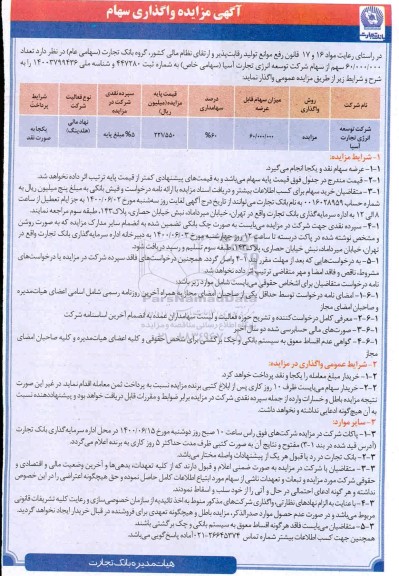 آگهی مزایده واگذاری سهام
بانک تجارت
در راستای رعایت مواد ۱۶ و ۱۷ قانون رفع موانع تولید رقابت‌پذیر و ارتقای نظام مالی کشور، گروه بانک تجارت (سهامی عام) در نظر دارد تعداد
۶۰/۰۰۰/۰۰۰ سهم از سهام شرکت توسعه انرژی تجارت آسیا (سهامی خاص) به شماره ثبت ۴۴۷۲۸۰ و شناسه ملی ۱۴۰۰۳۷۹۹۴۳۶ را به
شرح و شرایط زیر از طریق مزایده عمومی واگذار نماید:
نام شرکت
روش واگذاری
میزان سهام قابل عرضه
درصد سهامداری
قیمت پایه مزایده (میلیون ریال)
سپرده نقدی شرکت در مزایده
نوع فعالیت شرکت
شرایط پرداخت
شرکت توسعه انرژی تجارت آسیا
مزایده
۶۰/۰۰۰/۰۰۰
۶۰%
۲۲۷۵۵۰
۵% مبلغ پایه
نهاد مالی (هلدینگ)
یکجا به صورت نقد
۱- شرایط مزایده:
۱-۱- عرضه سهام نقد و یکجا انجام می‌گیرد.
۲-۱- قیمت مندرج در جدول فوق قیمت پایه سهام می‌باشد و به قیمت‌های پیشنهادی کمتر از قیمت پایه ترتیب اثر داده نخواهد شد.
۳-۱- متقاضیان خرید سهام برای کسب اطلاعات بیشتر و دریافت اسناد مزایده با ارائه درخواست و فیش بانکی به مبلغ پنج میلیون ریال به
شماره حساب ۰۰۱۶۰۲۸۹۵۹ به نام بانک تجارت می‌توانند از تاریخ درج آگهی لغایت روز سه‌شنبه مورخ ۱۴۰۰/۰۶/۰۲ به جز ایام تعطیل از ساعت
۸ الی ۱۲ به اداره سرمایه‌گذاری بانک تجارت واقع در تهران، خیابان میرداماد، نبش خیابان حصاری، پلاک ۱۴۲، طبقه سوم مراجعه نمایند.
۴-۱- سپرده نقدی جهت شرکت در مزایده می‌بایست به صورت چک بانکی تضمین شده به انضمام سایر مدارک مزایده که به صورت روشن
و مشخص نوشته شده در پاکت دربسته تا ساعت ۱۲ روز چهارشنبه مورخ ۱۴۰۰/۰۶/۰۳ به دبیرخانه اداره سرمایه‌گذاری بانک تجارت واقع در
تهران، خیابان میرداماد، نبش خیابان حصاری، پلاک ۱۴۲، طبقه سوم تسلیم و رسید دریافت شود.
۵-۱- به درخواست‌هایی که بعد از مهلت مقرر بند ۴-۱ واصل گردد، همچنین درخواست‌های فاقد سپرده شرکت در مزایده یا درخواست‌های
مشروط، ناقص و فاقد امضا و مهر متقاضی ترتیب اثر داده نخواهد شد.
نامه درخواست متقاضیان برای اشخاص حقوقی می‌بایست شامل موارد زیر باشد:
۱-۶-۱- امضای نامه درخواست توسط حداقل یکی از صاحبان امضای مجاز به همراه آخرین روزنامه رسمی شامل اسامی اعضای هیات‌مدیره
و صاحبان امضای مجاز
۲-۶-۱- معرفی کامل درخواست‌کننده و تشریح حوزه فعالیت و لیست سهامداران عمده به انضمام آخرین اساسنامه شرکت
۳-۶-۱- صورت‌های مالی حسابرسی شده دو سال اخیر
۴-۶-۱- گواهی عدم اقساط معوق به سیستم بانکی و چک برگشتی برای شخص حقوقی و کلیه اعضای هیات‌مدیره و کلیه صاحبان امضای
مجاز
۲- شرایط عمومی واگذاری در مزایده:
۱-۲- خریدار مبلغ معامله را یکجا و نقد پرداخت خواهد کرد.
۲-۲- خریدار سهام می‌بایست ظرف ۱۰ روز کاری پس از ابلاغ کتبی برنده مزایده نسبت به پرداخت ثمن معامله اقدام نماید. در غیر این صورت
نتیجه مزایده باطل و خسارات وارده از جمله سپرده نقدی شرکت در مزایده برابر ضوابط و مقررات قابل دریافت خواهد بود و پیشنهاددهنده نسبت
به آن هیچ‌گونه ادعایی نداشته و نخواهد داشت.
۳- سایر موارد:
۱-۳- پاکات شرکت در مزایده شرکت‌های فوق راس ساعت ۱۰ صبح روز دوشنبه مورخ ۱۴۰۰/۰۶/۱۵ در محل اداره سرمایه‌گذاری بانک تجارت
(آدرس قید شده در بند ۳-۱) مفتوح و نتایج آن به صورت کتبی ظرف مدت حداکثر ۵ روز کاری به برنده اعلام می‌گردد.
۲-۳- بانک تجارت در رد یا قبول هر یک از پیشنهادات واصله مختار می‌باشد.
۳-۳- متقاضیان با شرکت در مزایده به صورت ضمنی اعلام و قبول دارند که از کلیه تعهدات، بدهی‌ها و آخرین وضعیت مالی و اقتصادی و
حقوقی شرکت مورد مزایده و تبعات و تعهدات ناشی از سهام مورد ابتیاع اطلاعات کامل حاصل نموده و حق هیچگونه اعتراضی را در این خصوص
نداشته و هر گونه ادعای احتمالی در حال و آتی را از خود سلب و اسقاط نمودند.
۴-۳- با عنایت به الزام نهادهای نظارتی، واگذاری شرکت‌های مذکور منوط به اخذ تائیدیه از سازمان خصوصی‌سازی و رعایت کلیه تشریفات قانونی
مربوط می‌باشد و در صورت عدم حصول موارد صدرالذکر، مزایده باطل و هیچگونه تعهدی برای فروشنده در قبال خریدار ایجاد نخواهد گردید.
۵-۳- متقاضیان می‌بایست فاقد هرگونه اقساط معوق به سیستم بانکی و چک برگشتی باشند.
همچنین جهت کسب اطلاعات بیشتر شماره تماس ۲۶۶۴۵۳۷۴-۰۲۱ آماده پاسخ‌گویی می‌باشد.
هیات مدیره بانک تجارت